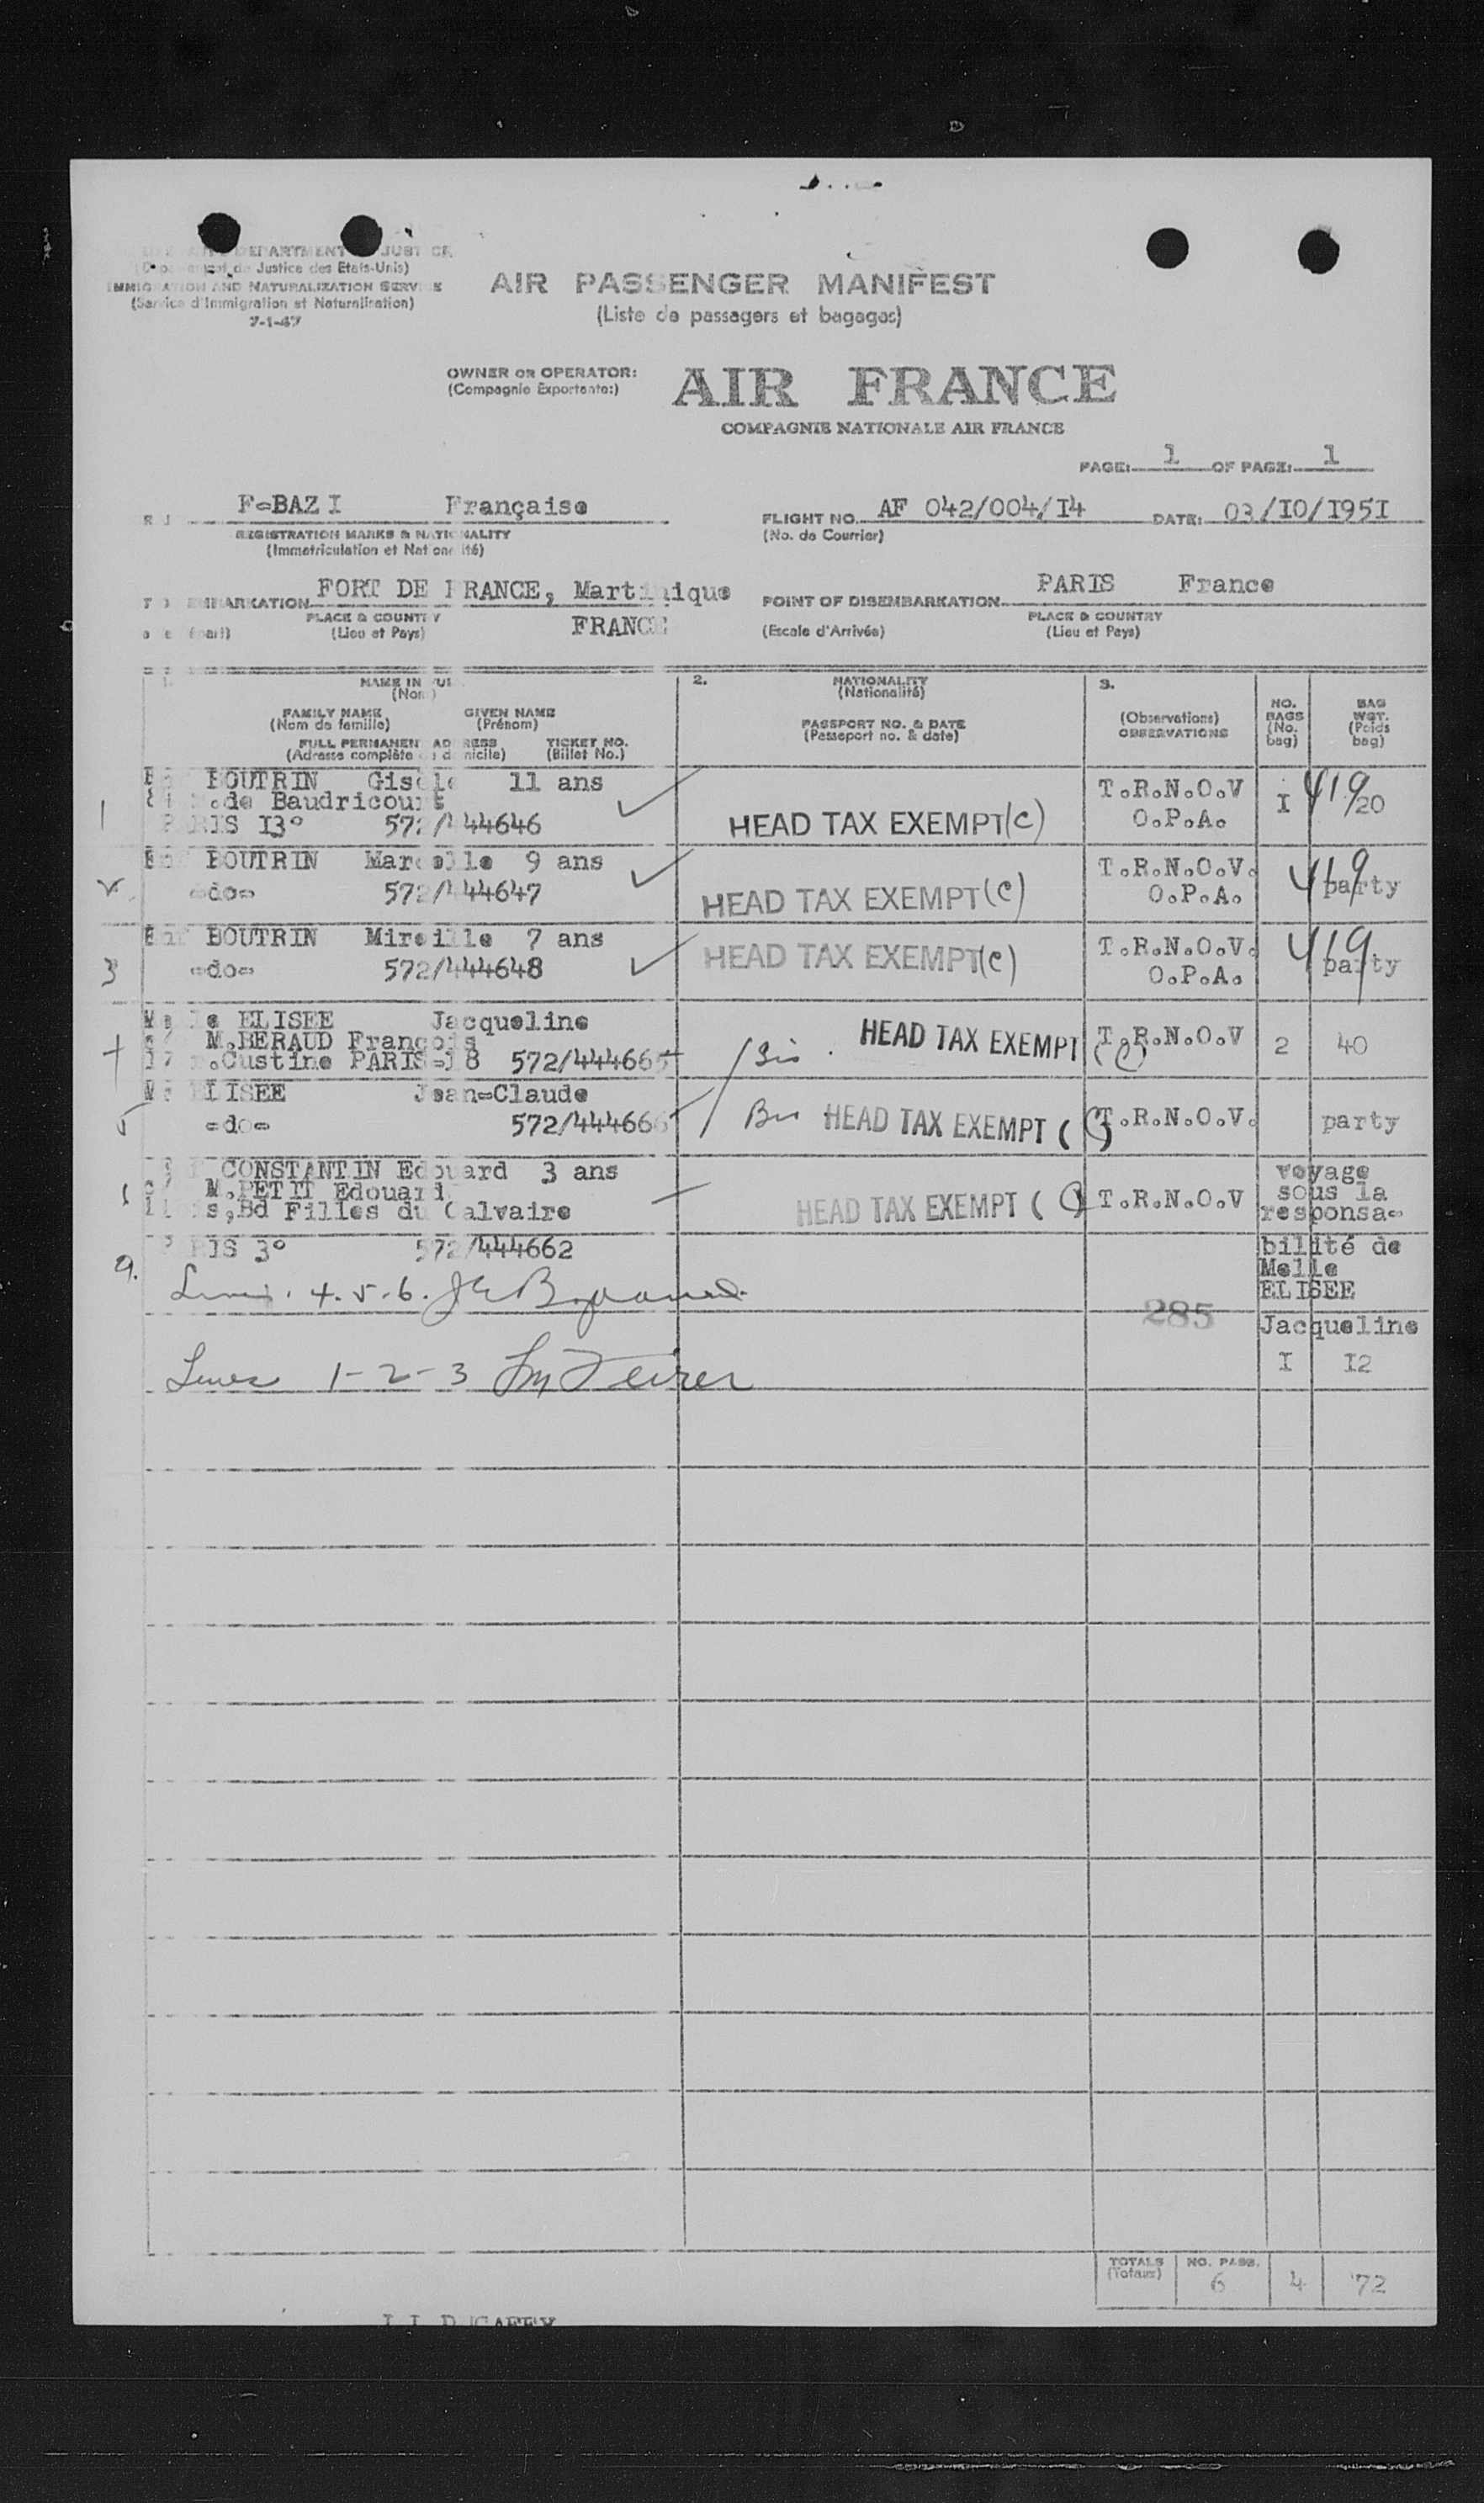 DEPARTMENT JUSTICE
de Justice des Etats-Unis)
IMMIGRATION AND NATURALIZATION SERVICE
(Service d'Immigration et Naturalisation)
7-1-47
AIR PASSENGER MANIFEST
(Liste de passagers et bagages)
OWNER OR OPERATOR:
(Compagnie Exportante:)
AIR FRANCE
COMPAGNIE NATIONALE AIR FRANCE
PAGE: 1 OF PAGE: 1
F-BAZI Française
REGISTRATION MARKS & NATIONALITY
(Immatriculation et Nationalité)
FLIGHT NO. AF 042/004/I4 DATE: 03/I0/I95I
(No. de Courrier)
EMBARKATION FORT DE FRANCE, Martinique
PLACE & COUNTRY
(Lieu et Pays)
FRANCE
POINT OF DISEMBARKATION PARIS France
(Escale d'Arrivée)
PLACE & COUNTRY
(Lieu et Pays)
NAME IN FULL
(Nom)
FAMILY NAME GIVEN NAME
(Nom de famille) (Prénom)
FULL PERMANENT ADRESS TICKET NO.
(Adresse complète de domicile) (Billet No.)
2. NATIONALITY
(Nationalité)
PASSPORT NO. & DATE
(Passeport no. & date)
3.
(Observations)
OBSERVATIONS
NO. BAGS
(No. bag)
BAG WGT.
(Poids bag)
1 BOUTRIN Gisele 11 ans
de Baudricourt
PARIS I3° 572/444646
HEAD TAX EXEMPT (C)
T.R.N.O.V
O.P.A.
I 419 20
BOUTRIN Marcelle 9 ans
-do- 572/444647
HEAD TAX EXEMPT (C)
T.R.N.O.V.
O.P.A.
419 party
3 BOUTRIN Mireille 7 ans
-do- 572/444648
HEAD TAX EXEMPT (C)
T.R.N.O.V.
O.P.A.
419 party
Melle ELISEE Jacqueline
M.BERAUD François
17 r.Custine PARIS-18 572/444665
HEAD TAX EXEMPT (C)
T.R.N.O.V
2 40
5 ELISEE Jean-Claude
-do- 572/444666
HEAD TAX EXEMPT (C)
T.R.N.O.V.
party
CONSTANTIN Edouard 3 ans
M.PETIT Edouard
bis,Bd Filles du Calvaire
PARIS 3° 572/444662
HEAD TAX EXEMPT (C)
T.R.N.O.V
voyage
sous la
responsa-
bilité de
Melle
ELISEE
Jacqueline
I I2
4.5.6.
285
Lines 1-2-3
TOTALS
(Totaux)
NO. PASS.
6 4 72